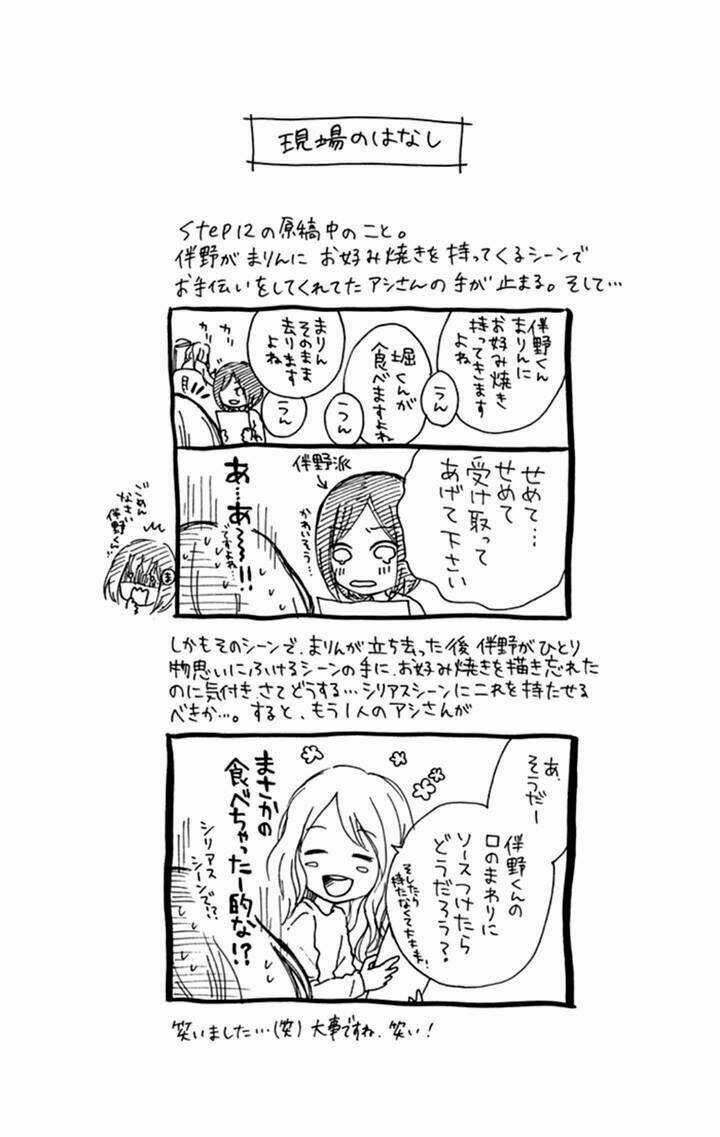 現場のはなし
step12の原稿中のこと。
伴野がまりんに お好み焼きを持ってくるシーンで
お手伝いをしてくれてたアシさんの手が止まる。そして…
伴野くん
まりんに
お好み焼き
持ってきます
よね
うん
堀くんが
食べますよね
うん
まりん
そのまま
去ります
よね
うん
カリ
カリ
せめて…
せめて
受け取って
あげて下さい
伴野派
かわいそう…
あ…あ〜〜!!
ですよね…
ごめん
なさい
伴野くん…
ま
しかもそのシーンで、まりんが立ち去った後 伴野がひとり
物思いにふけるシーンの手に、お好み焼きを描き忘れた
のに気付き、さてどうする…シリアスシーンにこれを持たせる
べきか…。すると、もう1人のアシさんが
あ、
そうだー
伴野くんの
口のまわりに
ソースつけたら
どうだろう?
そしたら
持たなくて大丈夫!
まさかの
食べちゃったー的な!?
シリアス
シーンで!?
笑いました…(笑) 大事ですね、笑い!